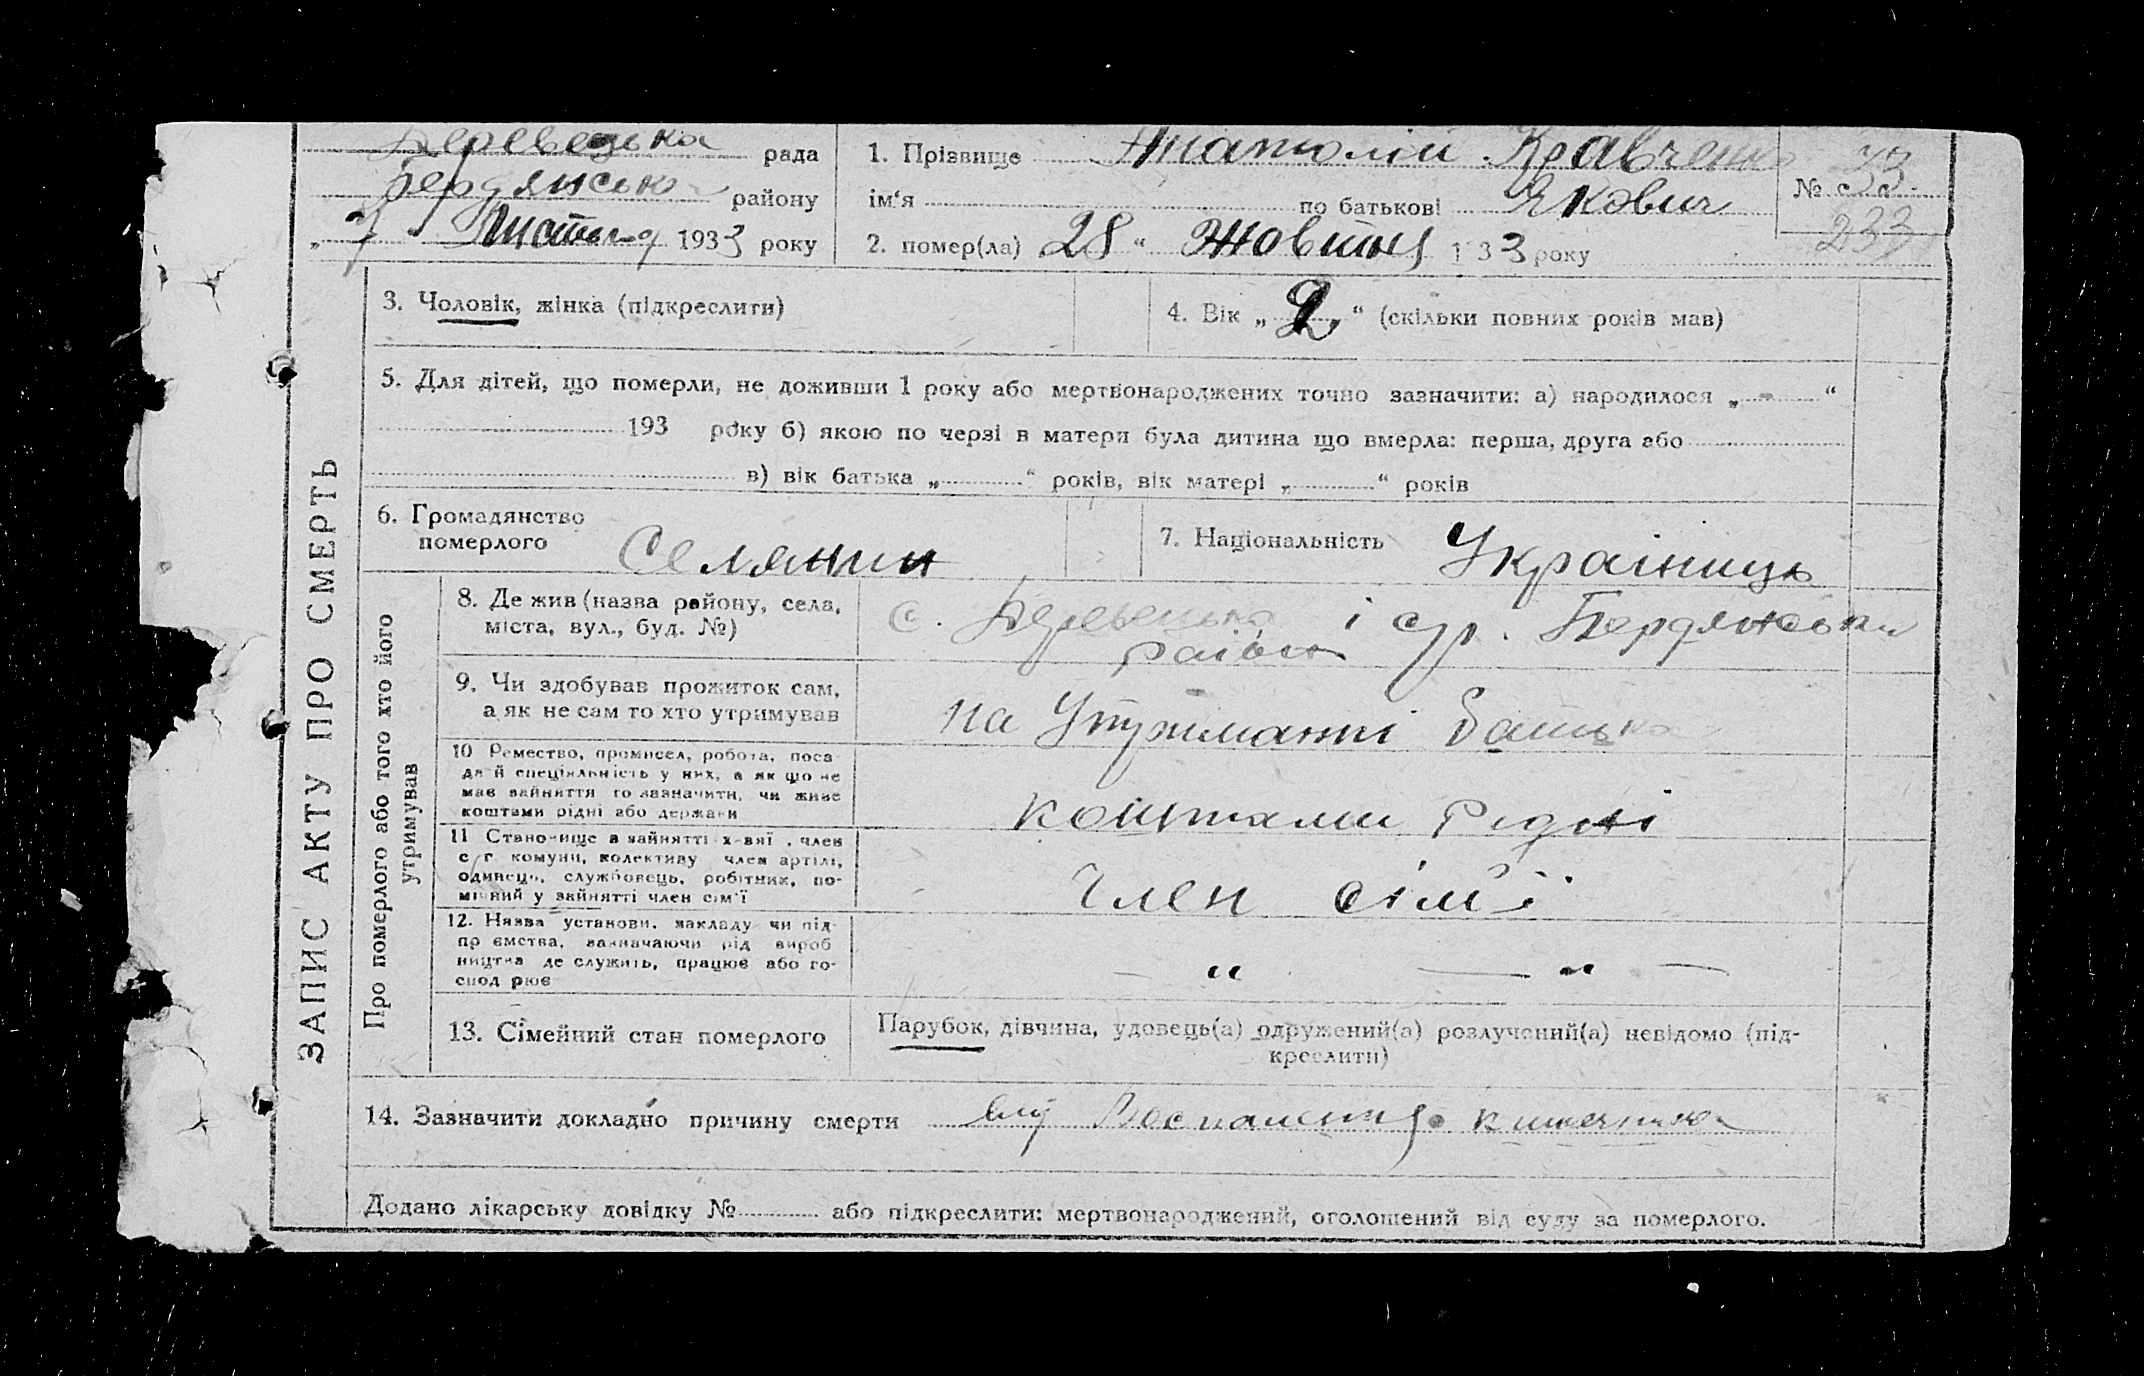 Деревецька рада
Бердянсько району
„ 7 " Листопад 1933 року
1. Прізвище Анатолій Кравченко
ім‘я по батькові Якович
2. помер(ла) 28 “ Жовтня 1 33 року
№ 33
233
3. Чоловік, жінка (підкреслити)
4. Вік „ 2 “ (скільки повних років мав)
5. Для дітей, що померли, не доживши 1 року або мертвонароджених точно зазначити: а) народилося „ - “
193 року б) якою по черзі в матери була дитина що вмерла: перша, друга або
в) вік батька „ “ років, вік матері „ “ років
6. Громадянство
померлого Селянин
7. Національність Україниць
ЗАПИС АКТУ ПРО СМЕРТЬ
Про померлого або того хто його
утримував
8. Де жив (назва району, села,
міста, вул., буд. №)
с. Деревецька і с/р. Бердянськи
район
9. Чи здобував прожиток сам,
а як не сам то хто утримував
на Утриманні батька
10 Ремество, промисел, робота, поса-
да й спеціяльність у них, а як що не
мав зайняття то зазначити, чи живе
коштами рідні або держави
коштами Рідні
11 Становище в зайнятті х-вяї , член
с/г комуни, колективу член артілі,
одинець, службовець, робітник, по-
мічний у зайнятті член сім'ї
Член сім'ї
12. Назва установи, закладу чи під-
пр ємства, зазначаючи рід вироб
ництва де служить, працює або го-
спод рює
— “ — “ —
13. Сімейний стан померлого
Парубок, дівчина, удовець(а) одружений(а) розлучений(а) невідомо (під-
креслити)
14. Зазначити докладно причину смерти від Воспаления кишечника
Додано лікарську довідку № або підкреслити: мертвонароджений, оголошений від суду за померлого.